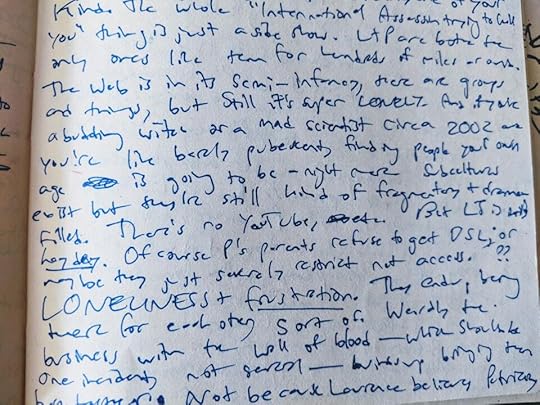 Kinda the whole "International Assassin trying to kill
you" thing is just a side show. L+P are both the
only ones like them for hundreds of miles around.
The web is in its semi-infancy, there are groups
and things, but still it's super LONELY. And if you're
a budding witch or a mad scientist circa 2002 and
you're like barely pubescent, finding people your own
age is going to be a nightmare. Subcultures
exist but they're still kind of fragmentary + drama
filled. There's no YouTube, But LJ is
heyday. Of course P's parents refuse to get DSL, or
maybe they just severely restrict net access. ??
LONELINESS + frustration. They end up being
there for each other, sort of. Weirdly the
business with the wall of blood — which should be
one incident, not several — winds up bringing them
Not because Laurence believes Patricia's